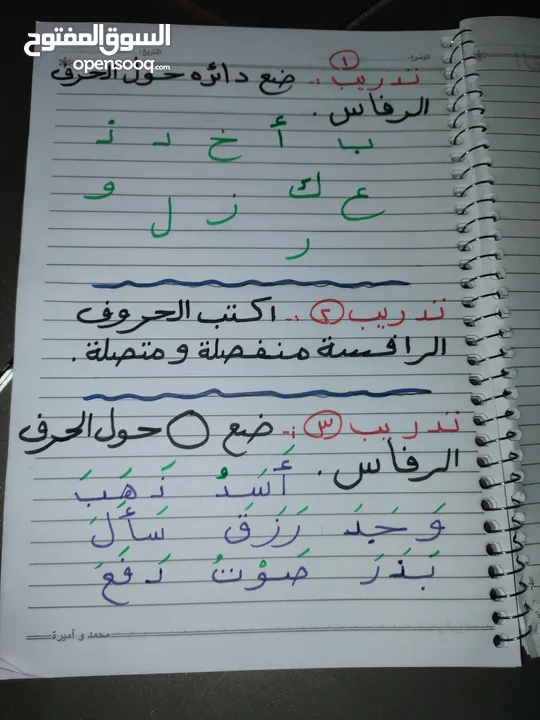 السوق المفتوح
opensooq.com
الموضوع:
التاريخ:
تدريب ١ :- ضع دائره حول الحرف
الرفاس .
ب أ خ د ذ
ع ك ز ل و
ر
تدريب ٢ :- اكتب الحروف
الرافسة منفصلة و متصلة .
تدريب ٣ :- ضع ◯ حول الحرف
الرفاس .
أَسَدُ ذَهَبَ
وَجَدَ رَزَقَ سَأَلَ
بَذَرَ صَوْتُ دَفَعَ
محمد و أميرة